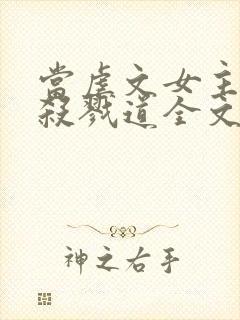 當虐文女主
殺戮道全文
神之右手